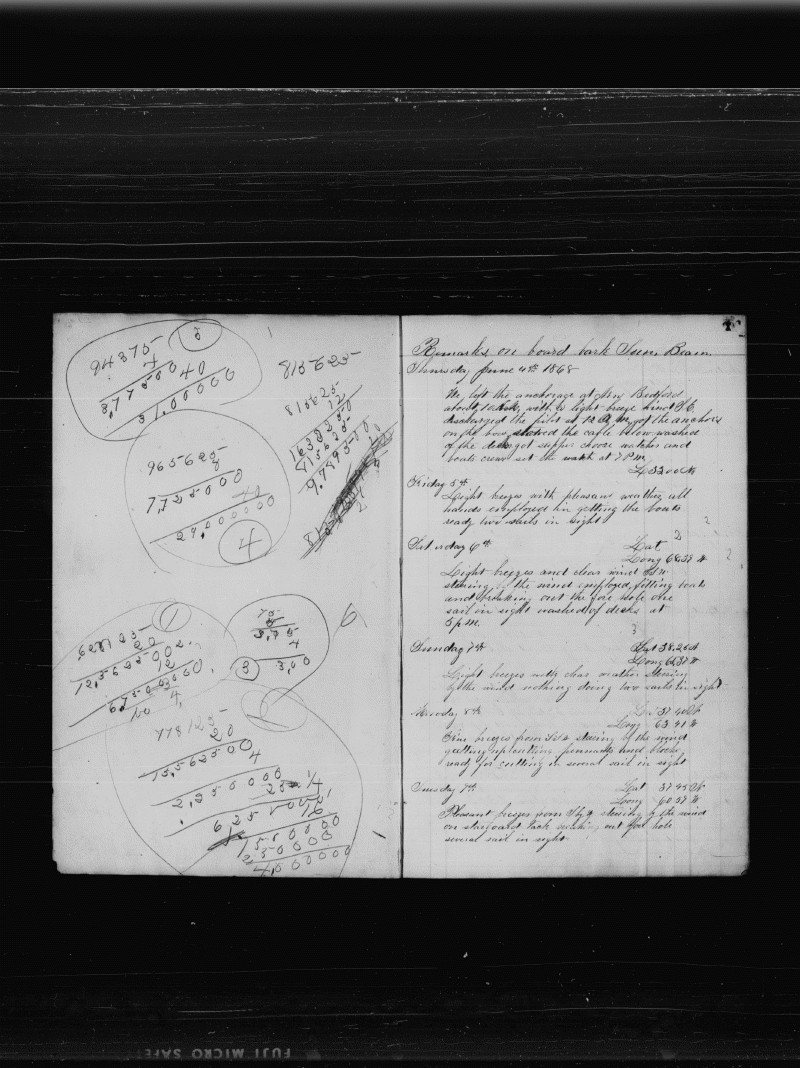 5
94375
4
3,77500
40
31,00000
815625
815625
12
1631250
815625
9,787500
965625
8
7,725000
40
29,000000
4
1
628125
20
12,562500
12
6,750000
4
75
5
3,75
4
3,00
3
6
778125
20
15,562500
4
2,250000
25
6250000
16
1500000
250000
4,000000
Remarks on board bark Sun Beam
Thursday June 4th 1868
We left the anchorage at New Bedford
about 10 AM with a light breeze wind S.E.
discharged the pilot at 12 M got the anchors
on the bow stowed the cable below washed
of the decks got supper chose watches and
boats crews set the watch at 7 PM
Friday 5th
Light breezes with pleasant weather all
hands employed in getting the boats
ready two sails in sight
2
Saturday 6th Lat
Long 68.38 W
Light breezes and clear wind
steering by the wind employed fitting boats
and breaking out the fore hole one
sail in sight washed of decks at
5 pm
3
Sunday 7th Lat 38.25 N
Long 66.37 W
Light breezes with clear weather steering
by the wind nothing doing two sails in sight
Monday 8th Lat 37 40 N
Long 63 41 W
Fine breezes from steering by the wind
getting up cutting pennants and blocks
ready for cutting in several sail in sight
Tuesday 9th Lat 37 45 N
Long 60 37 W
Pleasant breezes from steering by the wind
on starboard tack breaking out fore hole
several sail in sight
FUJI MICRO SAFE